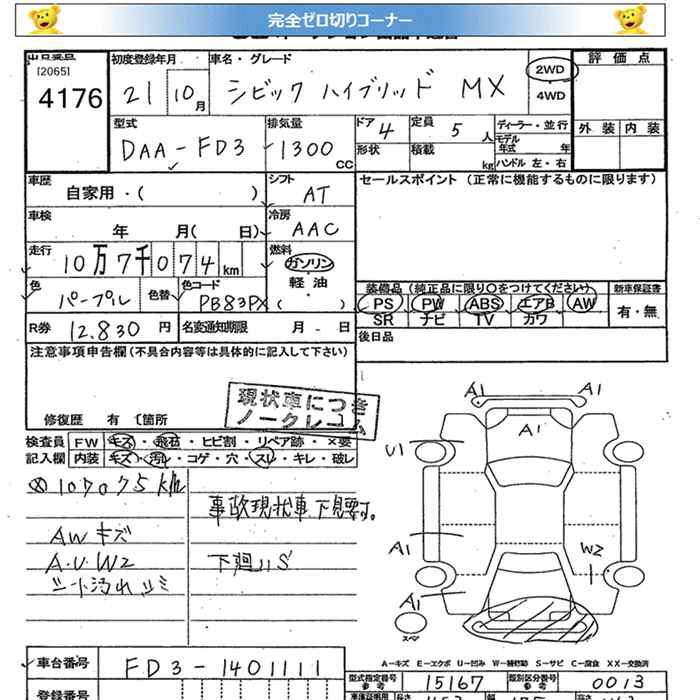 完全ゼロ切りコーナー
出品番号
[2065]
4176
初度登録年月
21 10 月
車名・グレード
シビック ハイブリッド MX
2WD
4WD
評価点
外装 内装
型式
DAA-FD3
排気量
1300 CC
ドア 4
形状
定員 5 人
積載 kg
ディーラー・並行
モデル年式 年
ハンドル 左・右
車歴
自家用・( )
シフト
AT
セールスポイント (正常に機能するものに限ります)
車検
年 月( 日)
冷房
AAC
走行
10万7千074km
燃料
ガソリン
軽油
( )
色
パープル
色替
色コード
PB83PX
装備品 (純正品に限り○をつけてください)
PS PW ABS エアB AW
SR ナビ TV カワ
新車保証書
有・無
R券 12.830 円
名変通知期限 月 - 日
後日品
注意事項申告欄 (不具合内容等は具体的に記入して下さい)
修復歴 有 ( 箇所
現状車につき
ノークレーム
検査員 FW キズ・飛石・ヒビ割・リペア跡・×要
記入欄 内装 キズ・汚レ・コゲ・穴・スレ・キレ・破レ
107075km
AW キズ
A.U.W2
シート汚れスレ
事故現状車下見要す。
下廻りS
A1 A1
A1
U1
A1
W2
A1
スペア
A-キズ E-エクボ U-凹み W-補修跡 S-サビ C-腐食 XX-交換済
車台番号
FD3-1401111
登録番号
型式指定番号
参考
15167
類別区分番号
参考
0013